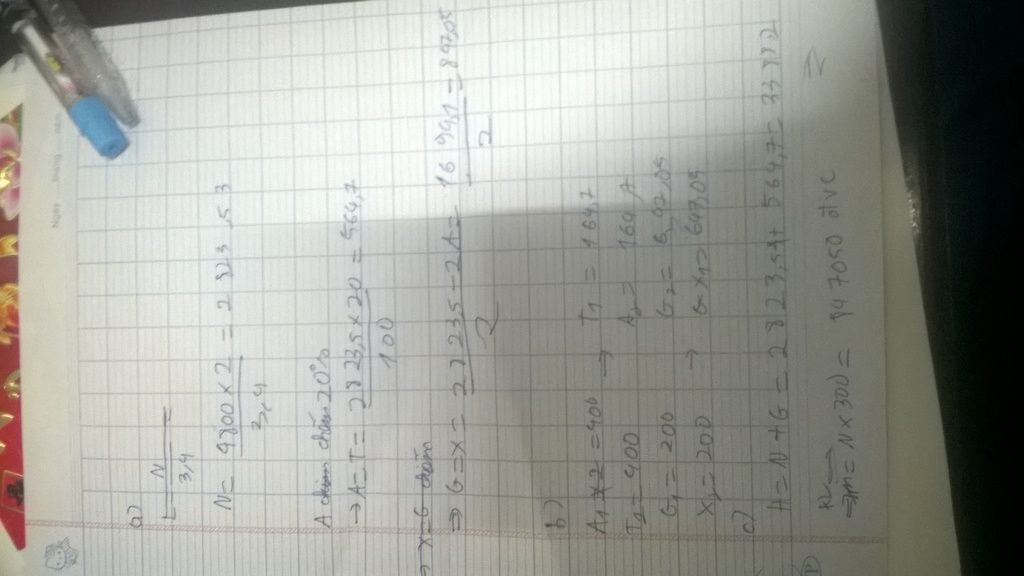 a)
L = N / 3,4 =
N = 4800 x 2 / 3,4 = 2823,53
A chiếm 20%
→ A = T = 2823,5 x 20 / 100 = 564,7
→ X = G chiếm
⇒ G = X = 28235 - 2A / 2 = 1694,1 / 2 = 847,05
b)
A₁ x 2 = 400 → T₁ = 164,7
T₂ = 400 A₂ = 164,7
G₁ = 200 G₂ =
X₂ = 200 → 647,05
c)
H = N + G = 2823,5 + 564,7 =
⇒ m = N x 300 = 847050 đvc